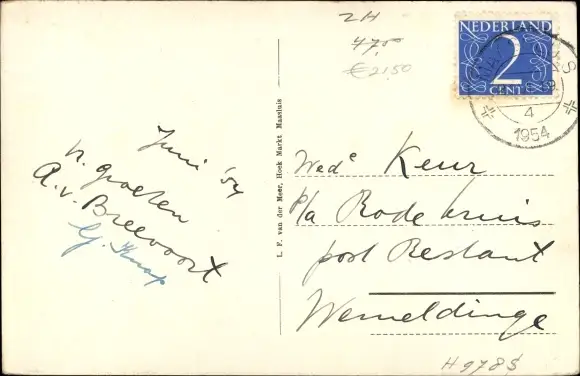 2H
47,50
€ 21,50
NEDERLAND
2
CENT
4
1954
Juni '54
h. groeten
A. v. Breevoort
G. Knap
L. F. van der Meer, Hoek Markt Maassluis
Wede Keur
p/a Rode kruis
post Restant
Wemeldinge
H 978$